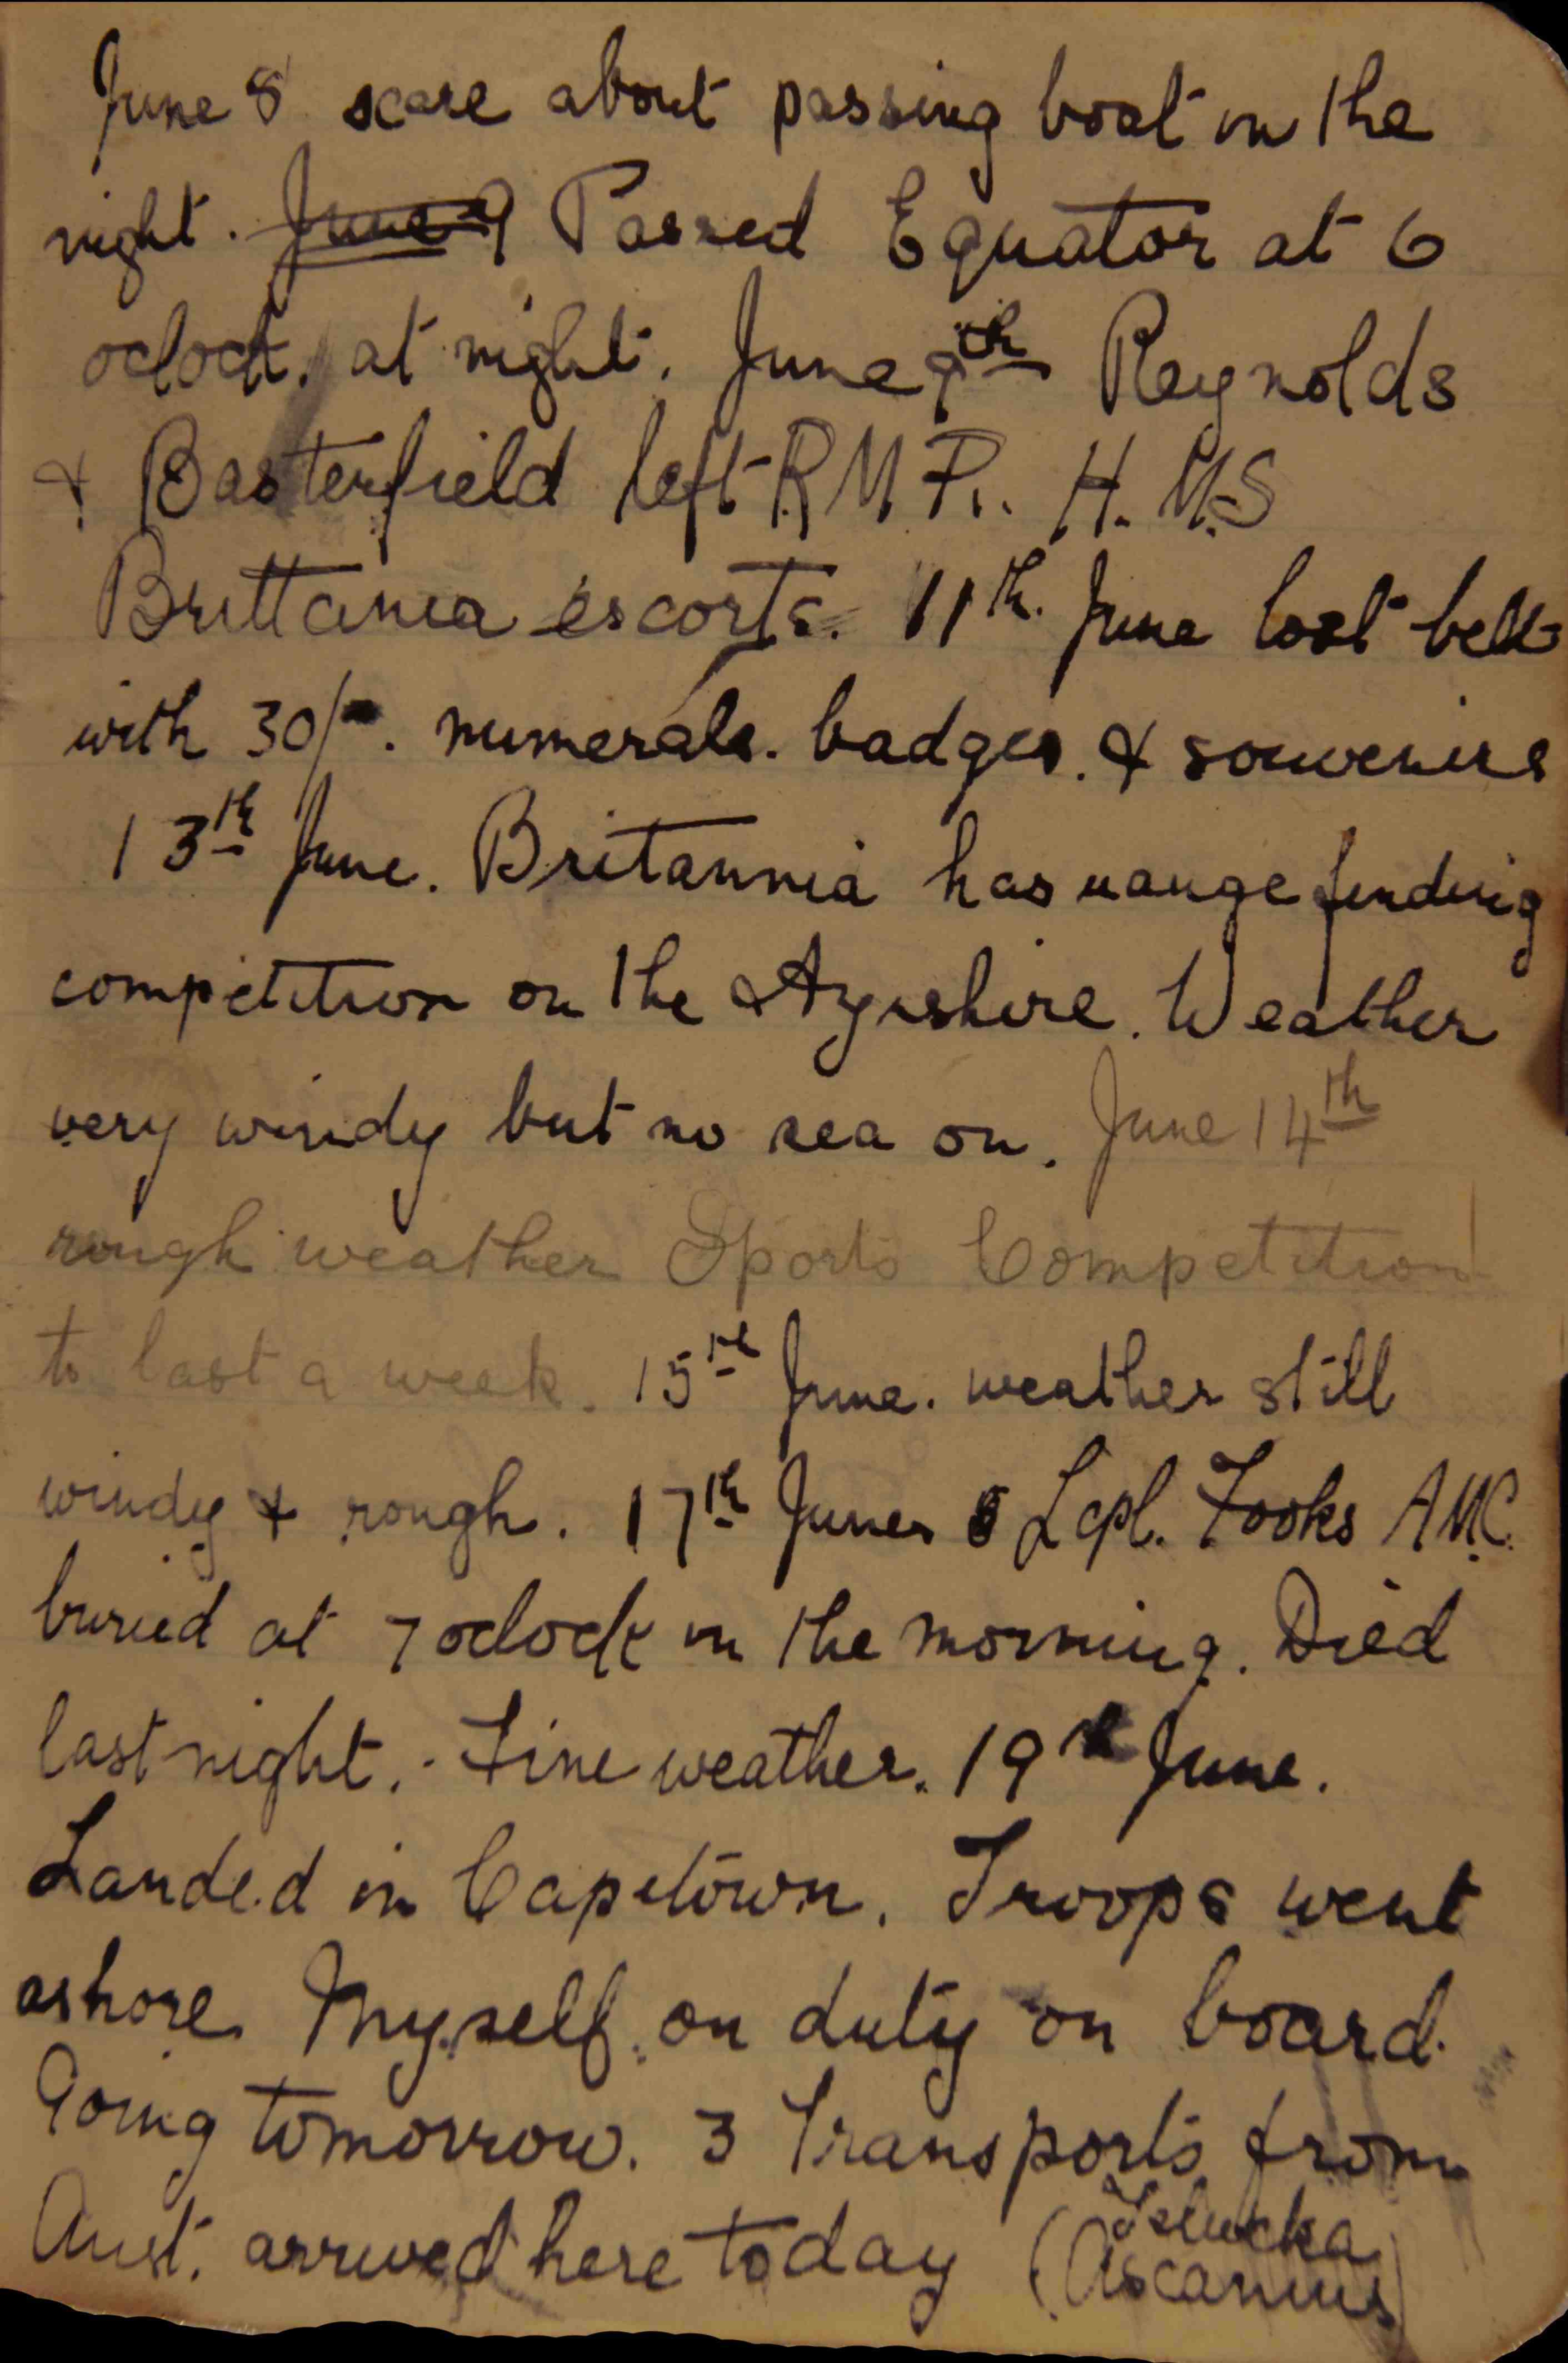 June 8 scare about passing boat in the
night. June 9 Passed Equator at 6
oclock. at night. June 9th Reynolds
& Basterfield left R M P. H.M.S
Brittania escorts. 11th. June lost belt
with 30/-. numerals. badges. & souvenirs
13th June. Britannia has range finding
competition on the Ayrshire. Weather
very windy but no sea on. June 14th
rough weather Sports Competition
to last a week. 15th June. weather still
windy & rough. 17th June Lcpl. Fooks AMC.
buried at 7 oclock in the morning. Died
last night. Fine weather. 19th June.
Landed in Capetown. Troops went
ashore. Myself on duty on board.
Going tomorrow. 3 Transports from
Aust. arrived here today (Ascanius)